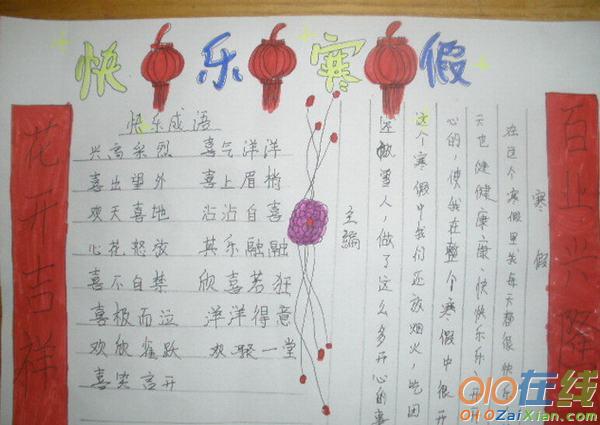 快乐寒假
花开吉祥
百业兴隆
快乐成语
兴高采烈 喜气洋洋
喜出望外 喜上眉梢
欢天喜地 沾沾自喜
心花怒放 其乐融融
喜不自禁 欣喜若狂
喜极而泣 洋洋得意
欢欣雀跃 欢聚一堂
喜笑言开
主编
寒假
在这个寒假里，我每天都很快乐
天也健健康康、快快乐乐、开开
心的，使我在整个寒假中很开
这个寒假中我们还放烟火，吃团
还做雪人，做了这么多开心的事
010在线
010ZaiXian.com